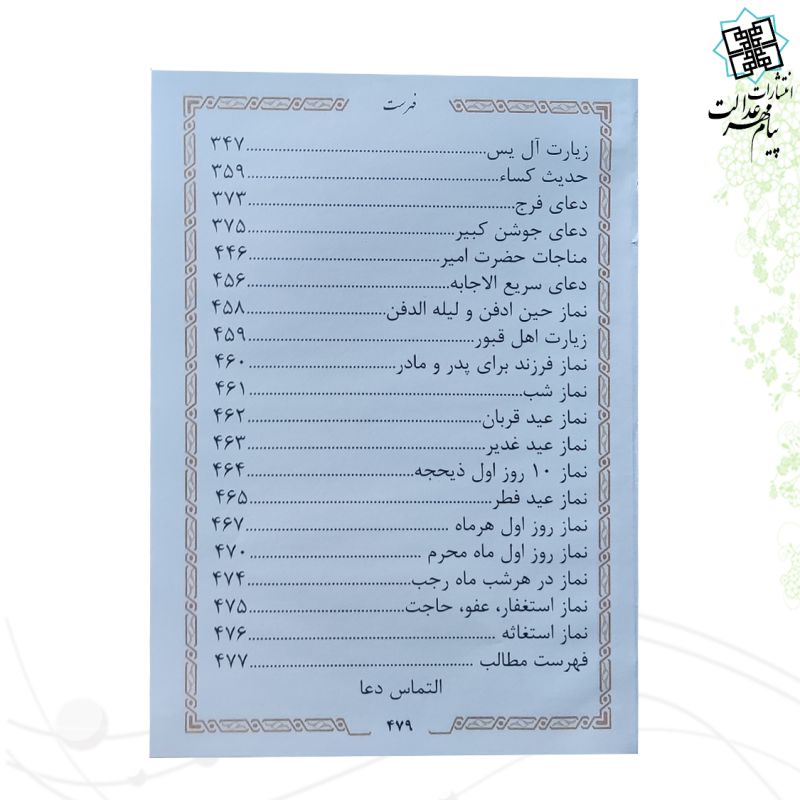 انتشارات
پیام مهر عدالت
فهرست
زیارت آل یس........................۳۴۷
حدیث کساء........................۳۵۹
دعای فرج........................۳۷۳
دعای جوشن کبیر........................۳۷۵
مناجات حضرت امیر........................۴۴۶
دعای سریع الاجابه........................۴۵۶
نماز حین ادفن و لیله الدفن........................۴۵۸
زیارت اهل قبور........................۴۵۹
نماز فرزند برای پدر و مادر........................۴۶۰
نماز شب........................۴۶۱
نماز عید قربان........................۴۶۲
نماز عید غدیر........................۴۶۳
نماز ۱۰ روز اول ذیحجه........................۴۶۴
نماز عید فطر........................۴۶۵
نماز روز اول هرماه ........................۴۶۷
نماز روز اول ماه محرم ........................۴۷۰
نماز در هرشب ماه رجب........................۴۷۴
نماز استغفار، عفو، حاجت........................۴۷۵
نماز استغاثه ........................۴۷۶
فهرست مطالب ........................۴۷۷
التماس دعا
۴۷۹